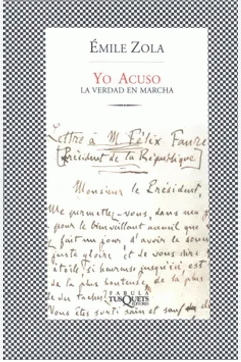 ÉMILE ZOLA
YO ACUSO
LA VERDAD EN MARCHA
Lettre à M. Félix Faure
[Président de la République]
Monsieur le Président,
Me permettez-vous, dans ma
pour le bienveillant accueil que
fait un jour, d'avoir le souci
juste gloire et de vous dire
étoile, si heureuse jusqu'ici, est
de la plus honteuse, de la plus
taches?
Vous êtes sorti sain et sauf
FÁBULA
TUSQUETS
EDITORES